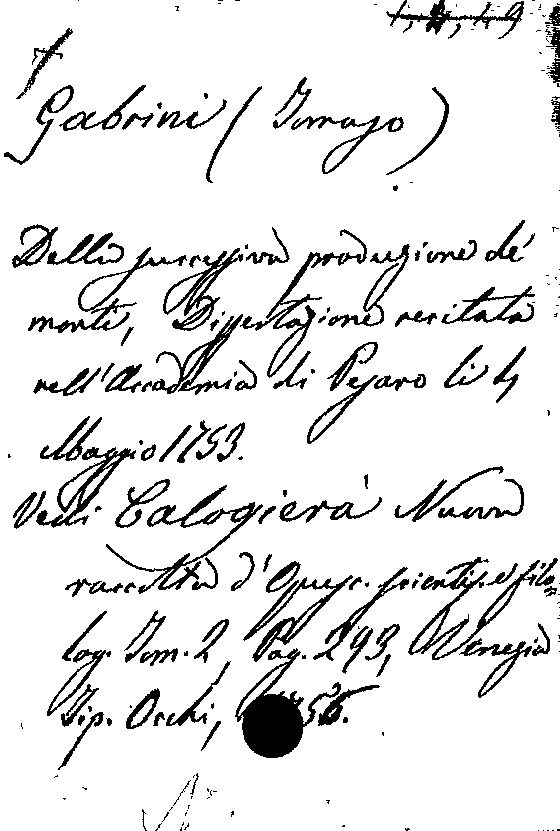 Gabrini (Tomaso)
Della successiva produzione de'
monti, Dissertazione recitata
nell'Accademia di Pesaro li 4
Maggio 1753.
Vedi Calogierà Nuova
raccolta d'Opusc. scientif. e filo
log. Tom. 2, Pag. 293, Venezia
Tip. Occhi,